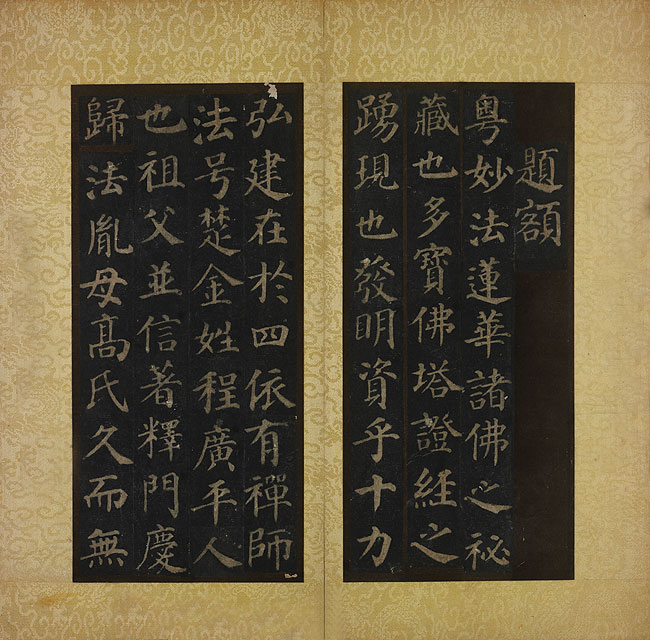 題額
粤妙法蓮華諸佛之祕
藏也多寶佛塔證經之
踴現也發明資乎十力
弘建在於四依有禪師
法号楚金姓程廣平人
也祖父並信著釋門慶
歸法胤母髙氏久而無